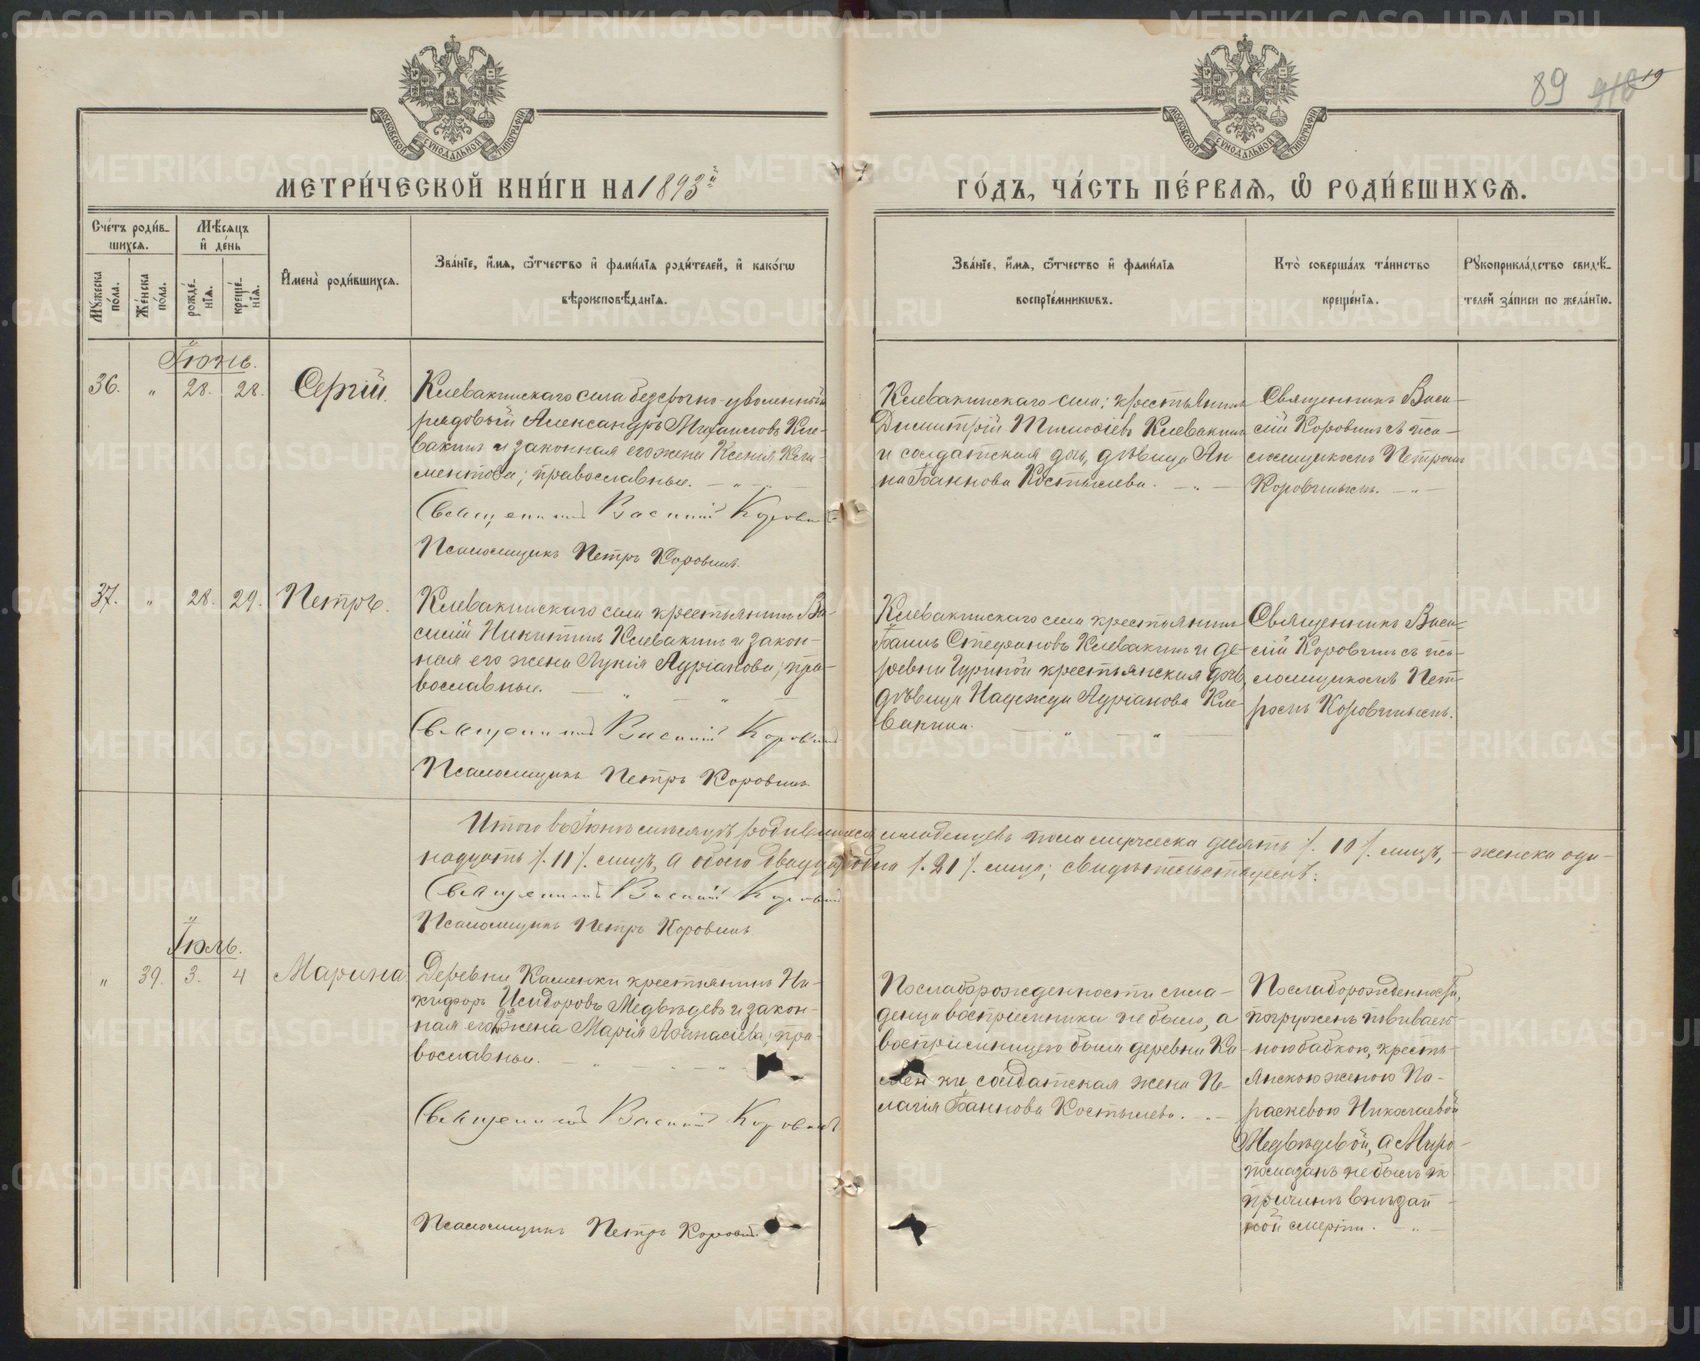 89 918 19
МОСКОВСКОЙ СУНОДАЛЬНОЙ ТИПОГРАФІИ
МОСКОВСКОЙ СУНОДАЛЬНОЙ ТИПОГРАФІИ
МЕТРИ́ЧЕСКОЙ КНИ́ГИ НА 1893й
ГО́ДЪ, ЧА́СТЬ ПЕ́РВАѦ, Ѡ РОДИ́ВШИХСѦ.
Сче́тъ роди́в-
шихсѧ.
Мѣ́сѧцъ
и де́нь
Му́жеска по́ла.
Же́нска по́ла.
рожде́нїѧ.
креще́нїѧ.
И҆мена̀ роди́вшихсѧ.
Зва́нїе, и҆́мѧ, ѻ҆́тчество и҆ фами́лїѧ роди́телей, и҆ како́гѡ
вѣроисповѣ́данїѧ.
Зва́нїе, и҆́мѧ, ѻ҆́тчество и҆ фами́лїѧ
воспрїе́мникѡвъ.
Кто̀ соверша́лъ та́инство
креще́нїѧ.
Рꙋкоприкла́дство свидѣ́-
телей за́писи по жела́нїю.
Іюнь.
36. " 28. 28. Сергій.
Клевакинскаго села безсрочно-уволенный
рядовый Александръ Михаиловъ Кле-
вакинъ и законная его жена Ксенія Кли-
ментова; православные. — " —
Священникъ Василій Коровинъ
Псаломщикъ Петръ Коровинъ.
Клевакинскаго села: крестьянинъ
Димитрій Тимоѳіевъ Клевакинъ
и солдатская дочь, дѣвица Ан-
на Іаннова Костылева. — " —
Священникъ Васи-
лій Коровинъ съ пса-
ломщикомъ Петромъ
Коровинымъ. — " —
37. " 28. 29. Петръ.
Клевакинскаго села крестьянинъ Ва-
силій Никитинъ Клевакинъ и закон-
ная его жена Лукія Адріанова; пра-
вославные. — " — " —
Священникъ Василій Коровинъ
Псаломщикъ Петръ Коровинъ
Клевакинскаго села крестьянинъ
Іаннъ Стефановъ Клевакинъ и де-
ревни Гуриной крестьянская дочь,
дѣвица Надежда Адріанова Кле-
вакина. — " — " —
Священникъ Васи-
лій Коровинъ съ пса-
ломщикомъ Пет-
ромъ Коровинымъ.
Итого въ Іюнѣ мѣсяцѣ родившихся младенцевъ пола мужеска десять /. 10 /. лицъ, — женска оди-
надцать /. 11 /. лицъ, а обоего двадцать одно /. 21 /. лицо; свидѣтельствуемъ:
Священникъ Василій Коровинъ
Псаломщикъ Петръ Коровинъ
Іюль.
" 39. 3. 4 Марина
Деревни Каменки крестьянинъ Ни-
кифоръ Исидоровъ Медвѣдевъ и закон-
ная его жена Марія Аѳанасіева; пра-
вославные. — " — " —
Священникъ Василій Коровинъ
Псаломщикъ Петръ Коровинъ
По слаборожденности мла-
денца воспріемника не было, а
воспріемницею была деревни Ка-
менки, солдатская жена Пе-
лагія Іаннова Костылева. — " —
По слаборожденности,
погруженъ повиваль-
ною бабкою, кресть-
янскою женою Па-
раскевою Николаевой
Медвѣдевой, а Миро-
помазанъ не былъ по
причинѣ внезап-
ной смерти. — " —